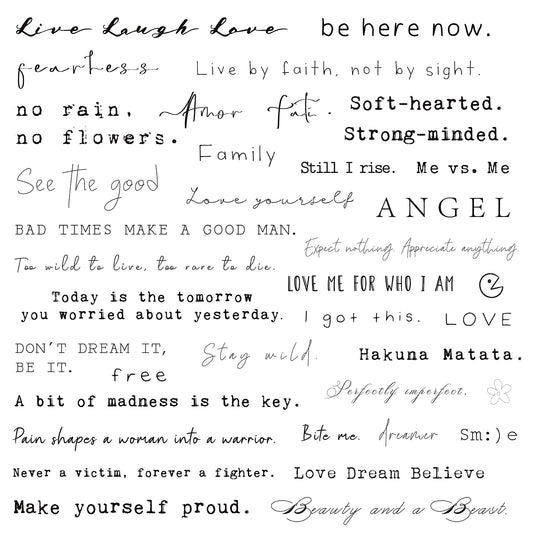 Live Laugh Love
be here now.
fearless
Live by faith, not by sight.
no rain,
no flowers.
Amor fati.
Soft-hearted.
Strong-minded.
Family
Still I rise.
Me vs. Me
See the good
Love yourself
ANGEL
BAD TIMES MAKE A GOOD MAN.
Expect nothing. Appreciate anything.
Too wild to live, too rare to die.
LOVE ME FOR WHO I AM
Today is the tomorrow
you worried about yesterday.
I got this.
LOVE
DON'T DREAM IT,
BE IT.
free
Stay wild.
Hakuna Matata.
Perfectly imperfect.
A bit of madness is the key.
Pain shapes a woman into a warrior.
Bite me.
dreamer
Sm:)e
Never a victim, forever a fighter.
Love Dream Believe
Make yourself proud.
Beauty and a Beast.